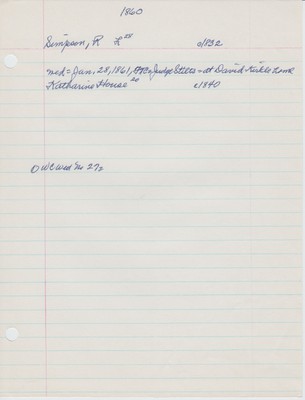 1860
Simpson, R L 28 c1832
med = Jan. 28, 1861, Judge Stilts = at David Kirkle home
Katharine House 20 c1840
O WC Wed No 272